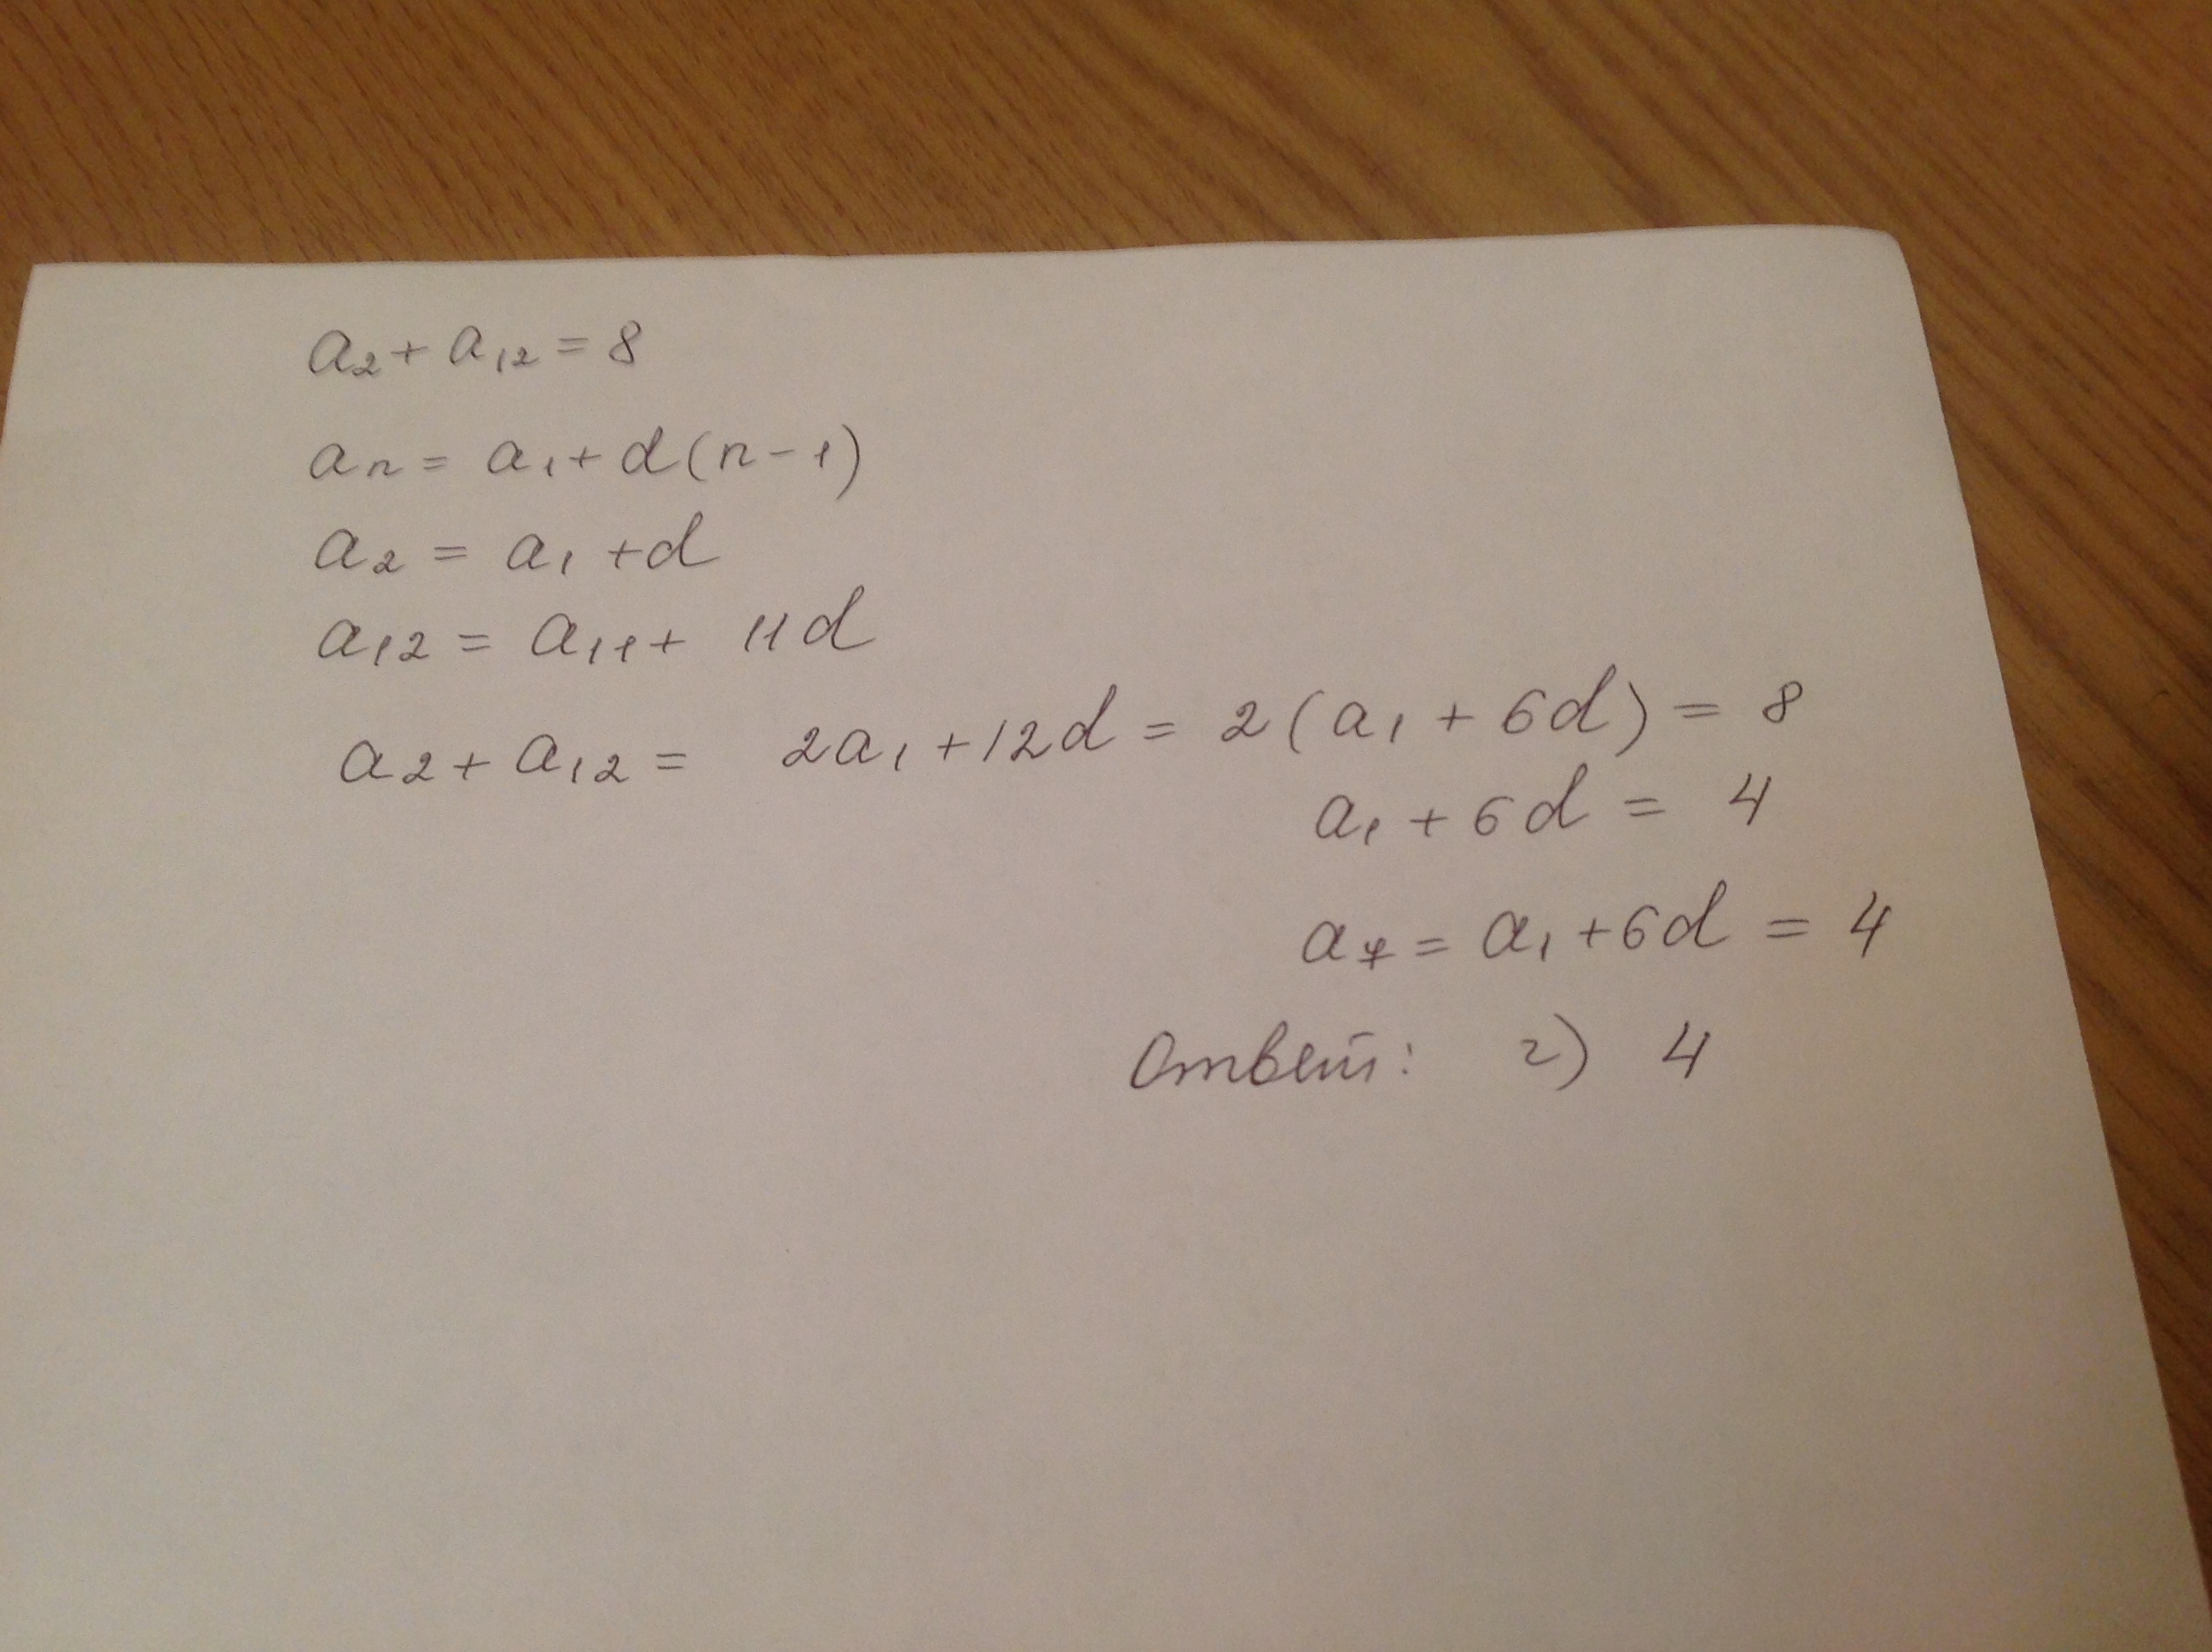 a₂ + a₁₂ = 8
aₙ = a₁ + d(n-1)
a₂ = a₁ + d
a₁₂ = a₁₁ + 11d
a₂ + a₁₂ = 2a₁ + 12d = 2(a₁ + 6d) = 8
a₁ + 6d = 4
a₇ = a₁ + 6d = 4
Ответ: г) 4